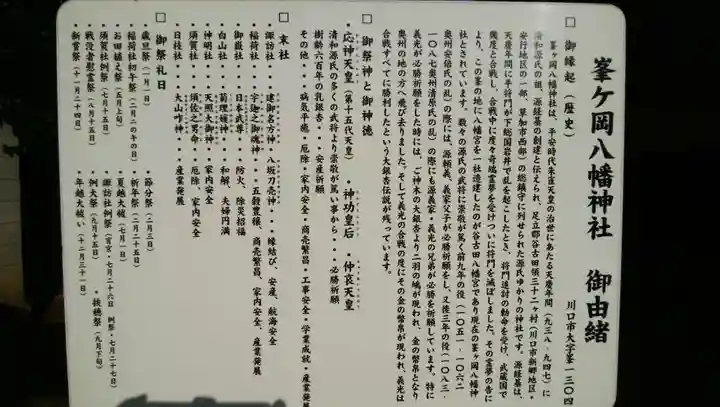 峯ケ岡八幡神社　御由緒
川口市大字峯一三〇四
□ 御縁起（歴史）
峯ヶ岡八幡神社は、平安時代朱雀天皇の治世にあたる天慶年間（九三八‐九四七）に
清和源氏の祖、源経基の創建と伝えられ、足立郡谷古田領三十二ヶ村（川口市新郷地区・
安行地区の一部、草加市西部）の総鎮守に列せられた源氏ゆかりの神社です。源経基は、
天慶年間に平将門が下総国岩井で乱を起こしたとき、将門追討の勅命を受け、武蔵国で
幾度と合戦し、合戦中に度々奇瑞霊夢を受けついに将門を滅ぼしました。その霊夢の告に
より、この峯の地に八幡宮を一社造建したのが谷古田八幡宮であり現在の峯ヶ岡八幡神
社とされています。数々の源氏の武将に崇敬が篤く前九年の役（一〇五一‐一〇六二
奥州安倍氏の乱）の際には、源頼義、義家父子が必勝祈願をし、又後三年の役（一〇八三‐
一〇八七奥州清原氏の乱）の際にも源義家・義光の兄弟が必勝を祈願しています。特に
義光が必勝祈願をした時には、ご神木の大銀杏より二羽の鳩が現われ、金の幣帛となり
奥州の地の方へ飛び去りました。そして義光の合戦の度にその金の幣帛が現われ、義光は
合戦すべてに勝利したという大銀杏伝説が残っています。
□ 御祭神と御神徳
・応神天皇（第十五代天皇）・神功皇后・仲哀天皇
清和源氏の多くの武将より崇敬が篤い事から・・・必勝祈願
樹齢六百年の乳銀杏・・・安産祈願
その他・・・病気平癒・厄除・家内安全・商売繁昌・工事安全・学業成就・産業発展
□ 末社
・諏訪社・・建御名方神・八坂刀売神・・縁結び、安産、航海安全
・稲荷社・・宇迦之御魂神・・・五穀豊穣、商売繁昌、家内安全、産業発展
・御嶽社・・日本武尊・・・防火、除災招福
・白山社・・菊理媛神・・・和解、夫婦円満
・神明社・・天照大御神・・・家内安全
・須賀社・・須佐之男命・・・厄除、家内安全
・日枝社・・大山咋神・・・産業発展
□ 御祭礼日
・歳旦祭（一月一日）　・節分祭（二月三日）
・稲荷社初午祭（二月二の午の日）　・祈年祭（二月二十五日）
・お田植え祭（五月上旬）　・夏越大祓（七月一日）
・須賀社例祭（七月十五日）　・諏訪社例祭（宵宮・七月二十六日　例祭・七月二十七日）
・戦没者慰霊祭（八月十五日）　・例大祭（九月十五日）　・抜穂祭（九月下旬）
・新嘗祭（十一月二十四日）　・年越大祓い（十二月三十一日）